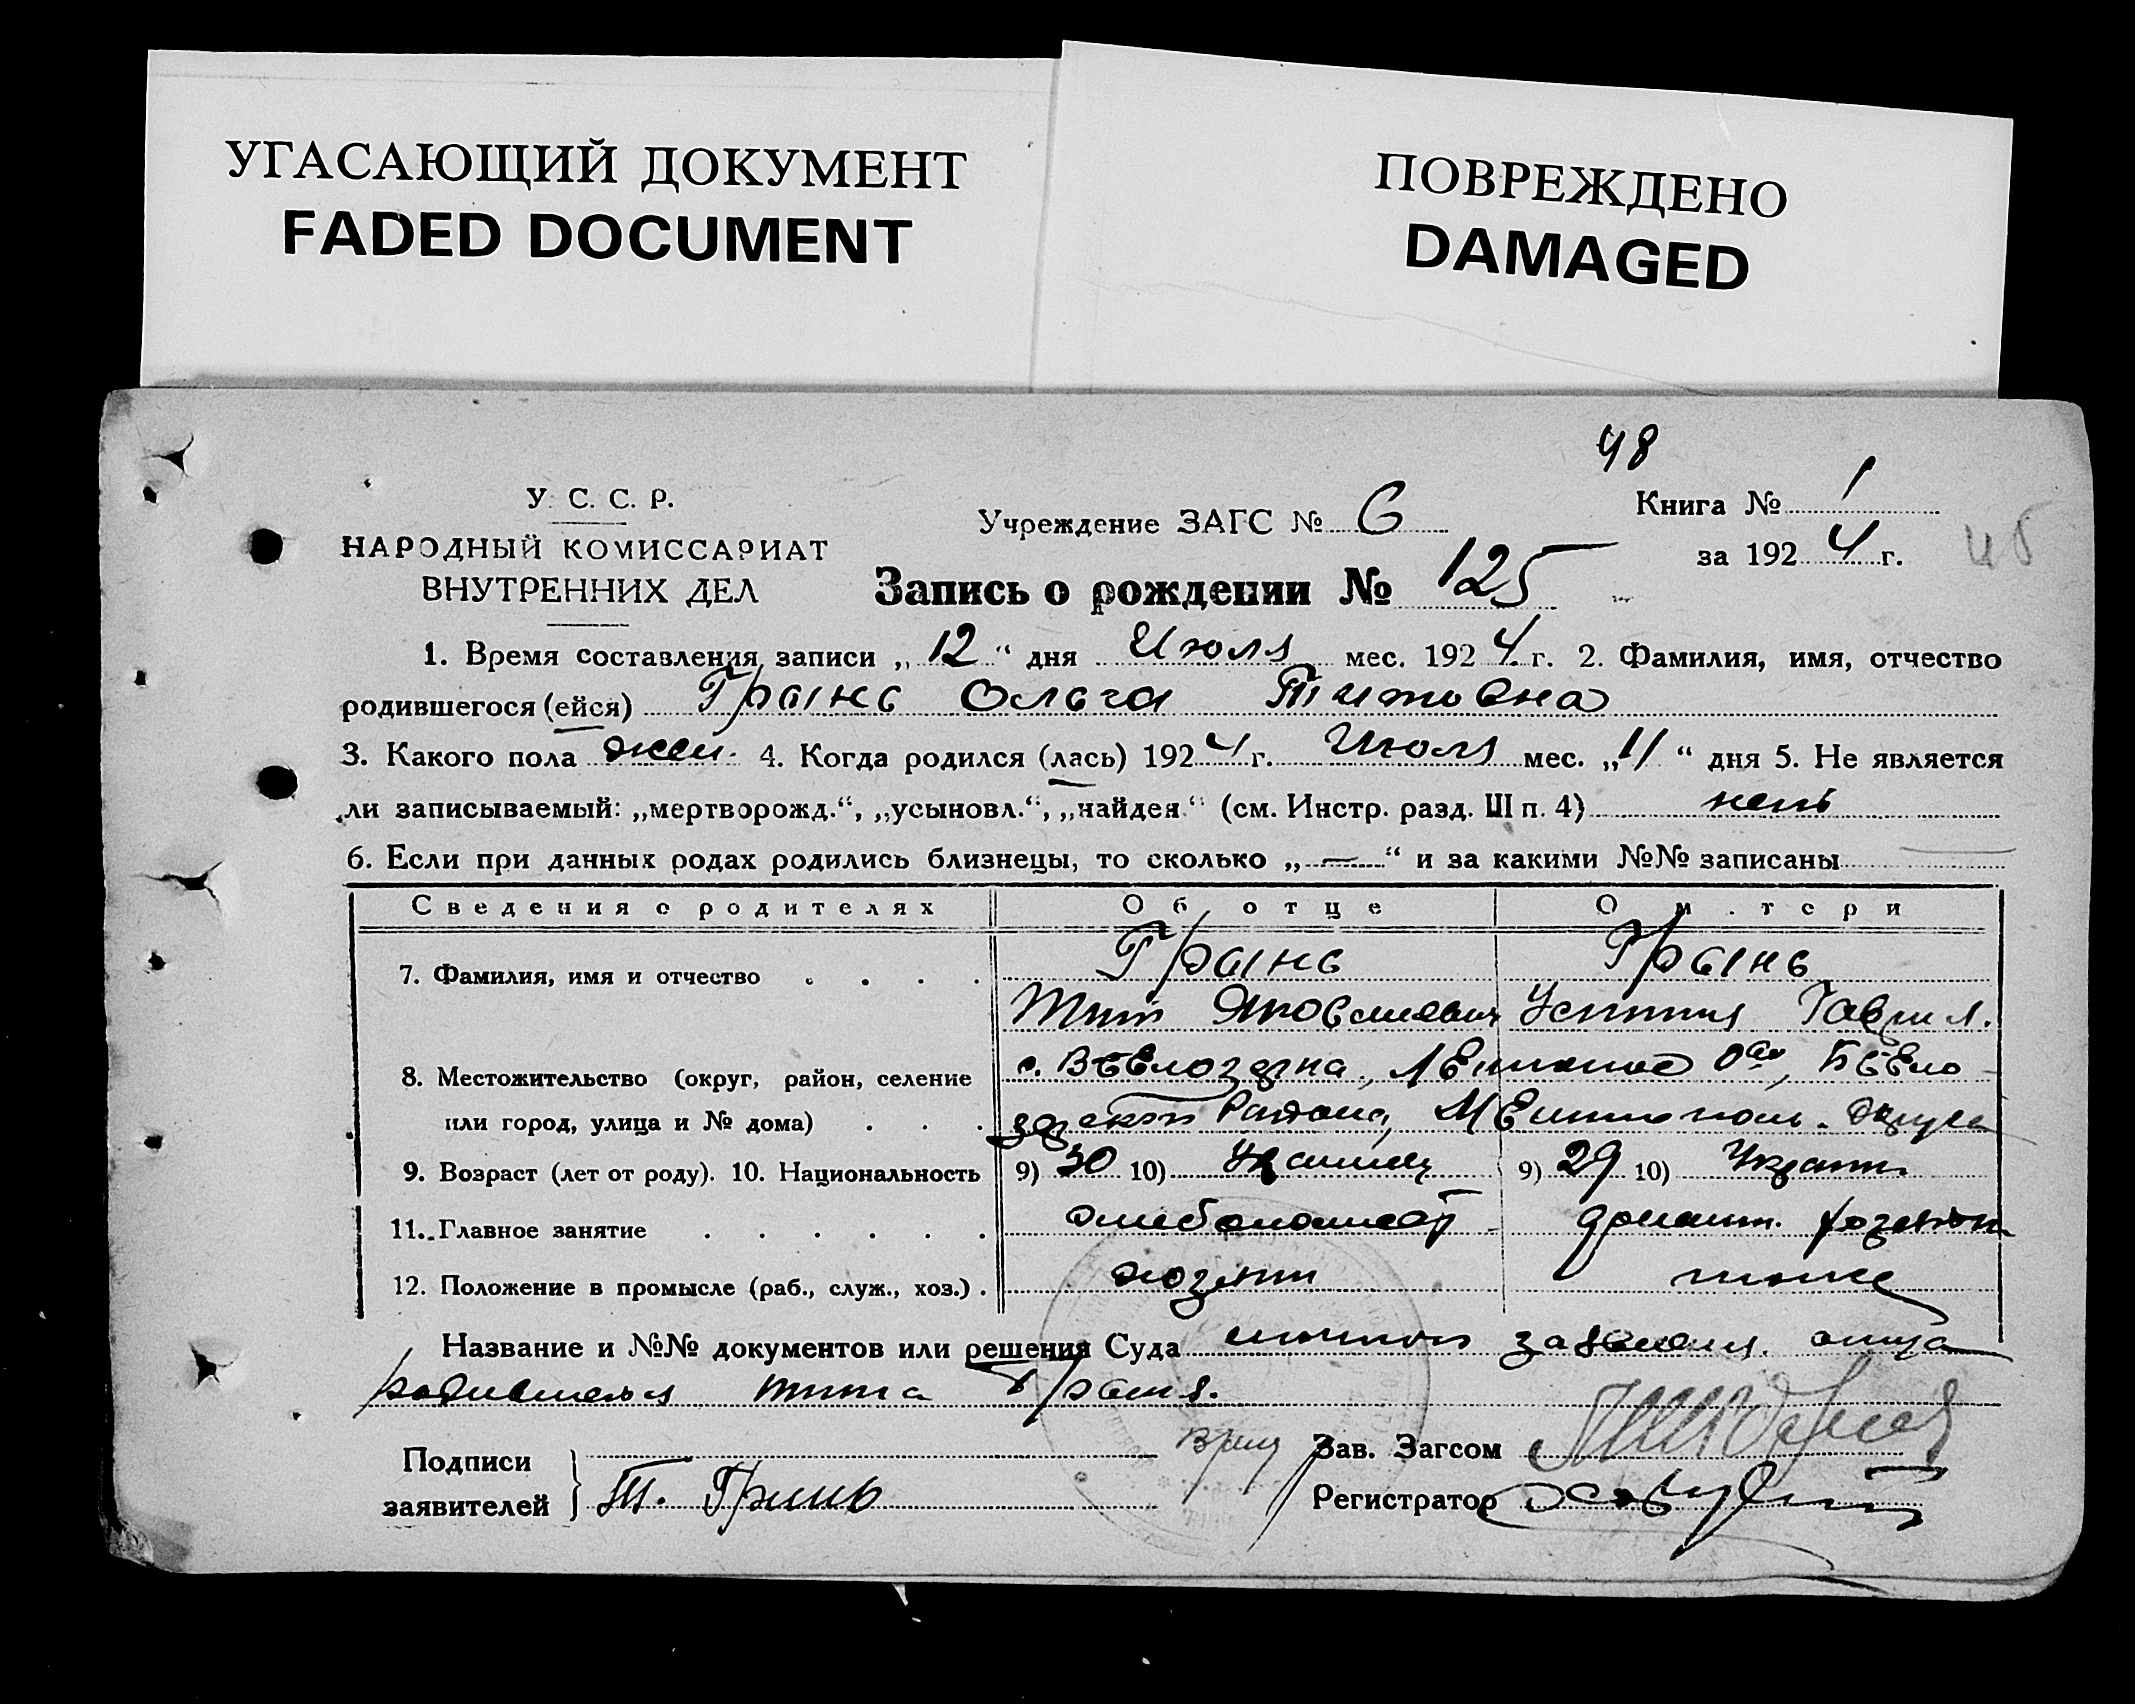 УГАСАЮЩИЙ ДОКУМЕНТ
FADED DOCUMENT
ПОВРЕЖДЕНО
DAMAGED
48
У. С. С. Р.
НАРОДНЫЙ КОМИССАРИАТ
ВНУТРЕННИХ ДЕЛ
Учреждение ЗАГС № 6
Книга № 1
за 1924 г.
Запись о рождении № 125
1. Время составления записи „12“ дня Июля мес. 1924 г. 2. Фамилия, имя, отчество
родившегося (ейся) Грань Ольга Титовна
3. Какого пола жен. 4. Когда родился (лась) 1924 г. Июля мес. „11“ дня 5. Не является
ли записываемый: „мертворожд.“, „усыновл.“, „найден“ (см. Инстр. разд. III п. 4) нет
6. Если при данных родах родились близнецы, то сколько „—“ и за какими №№ записаны —
Сведения о родителях Об отце О матери
7. Фамилия, имя и отчество Грань Грань
Тит Яковлевич Устиния Гаврил.
8. Местожительство (округ, район, селение с. Белозерка,
или город, улица и № дома) Района, Мелитополь. Округа
9. Возраст (лет от роду). 10. Национальность 9) 30 10) Украинец 9) 29 10) Украин.
11. Главное занятие хлебопашест домашн. хозяйств
12. Положение в промысле (раб., служ., хоз.) хозяин тоже
Название и №№ документов или решения Суда заявления отца
Тита Граня.
Подписи
заявителей Т. Грань
Врид Зав. Загсом
Регистратор